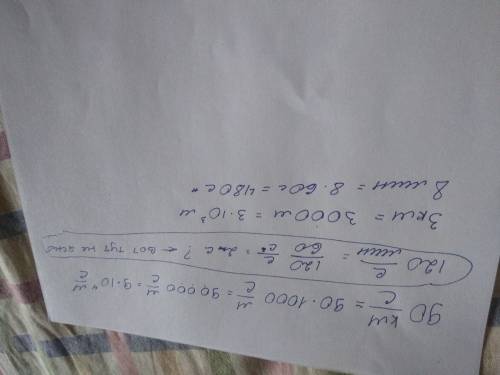 90 км/с = 90·1000 м/с = 90 000 м/с = 9·10⁴ м/с
120 с/мин = 120/60 с/с = 2 с ? ← вот тут не ясно
3км = 3000 м = 3·10³ м
8 мин = 8·60 с = 480 с